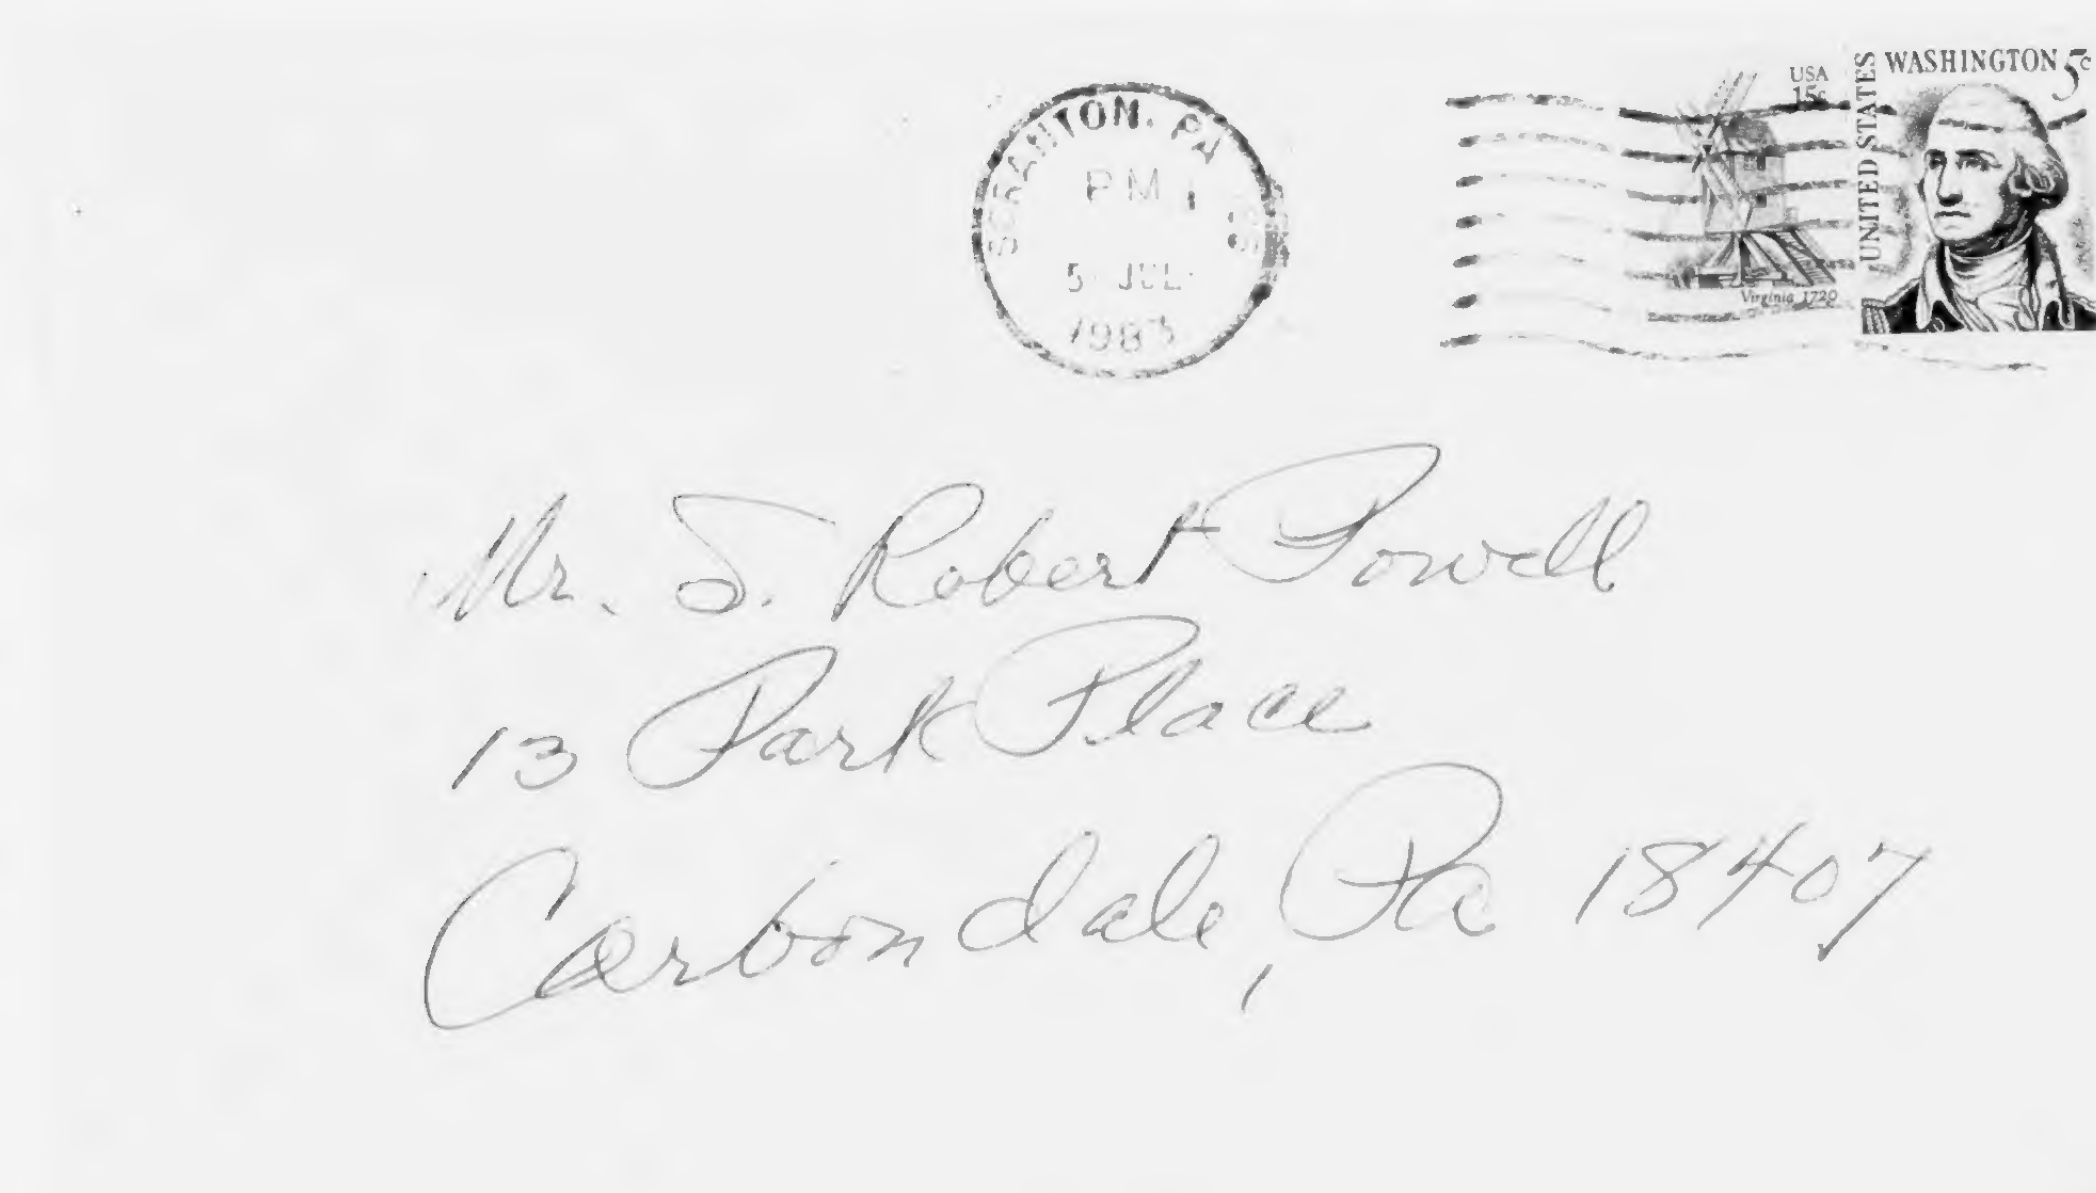 SCRANTON, PA
PM
5 JUL
1983
USA
15c
Virginia 1720
UNITED STATES
WASHINGTON 5c
Mr. S. Robert Powell
13 Park Place
Carbondale, Pa 18407